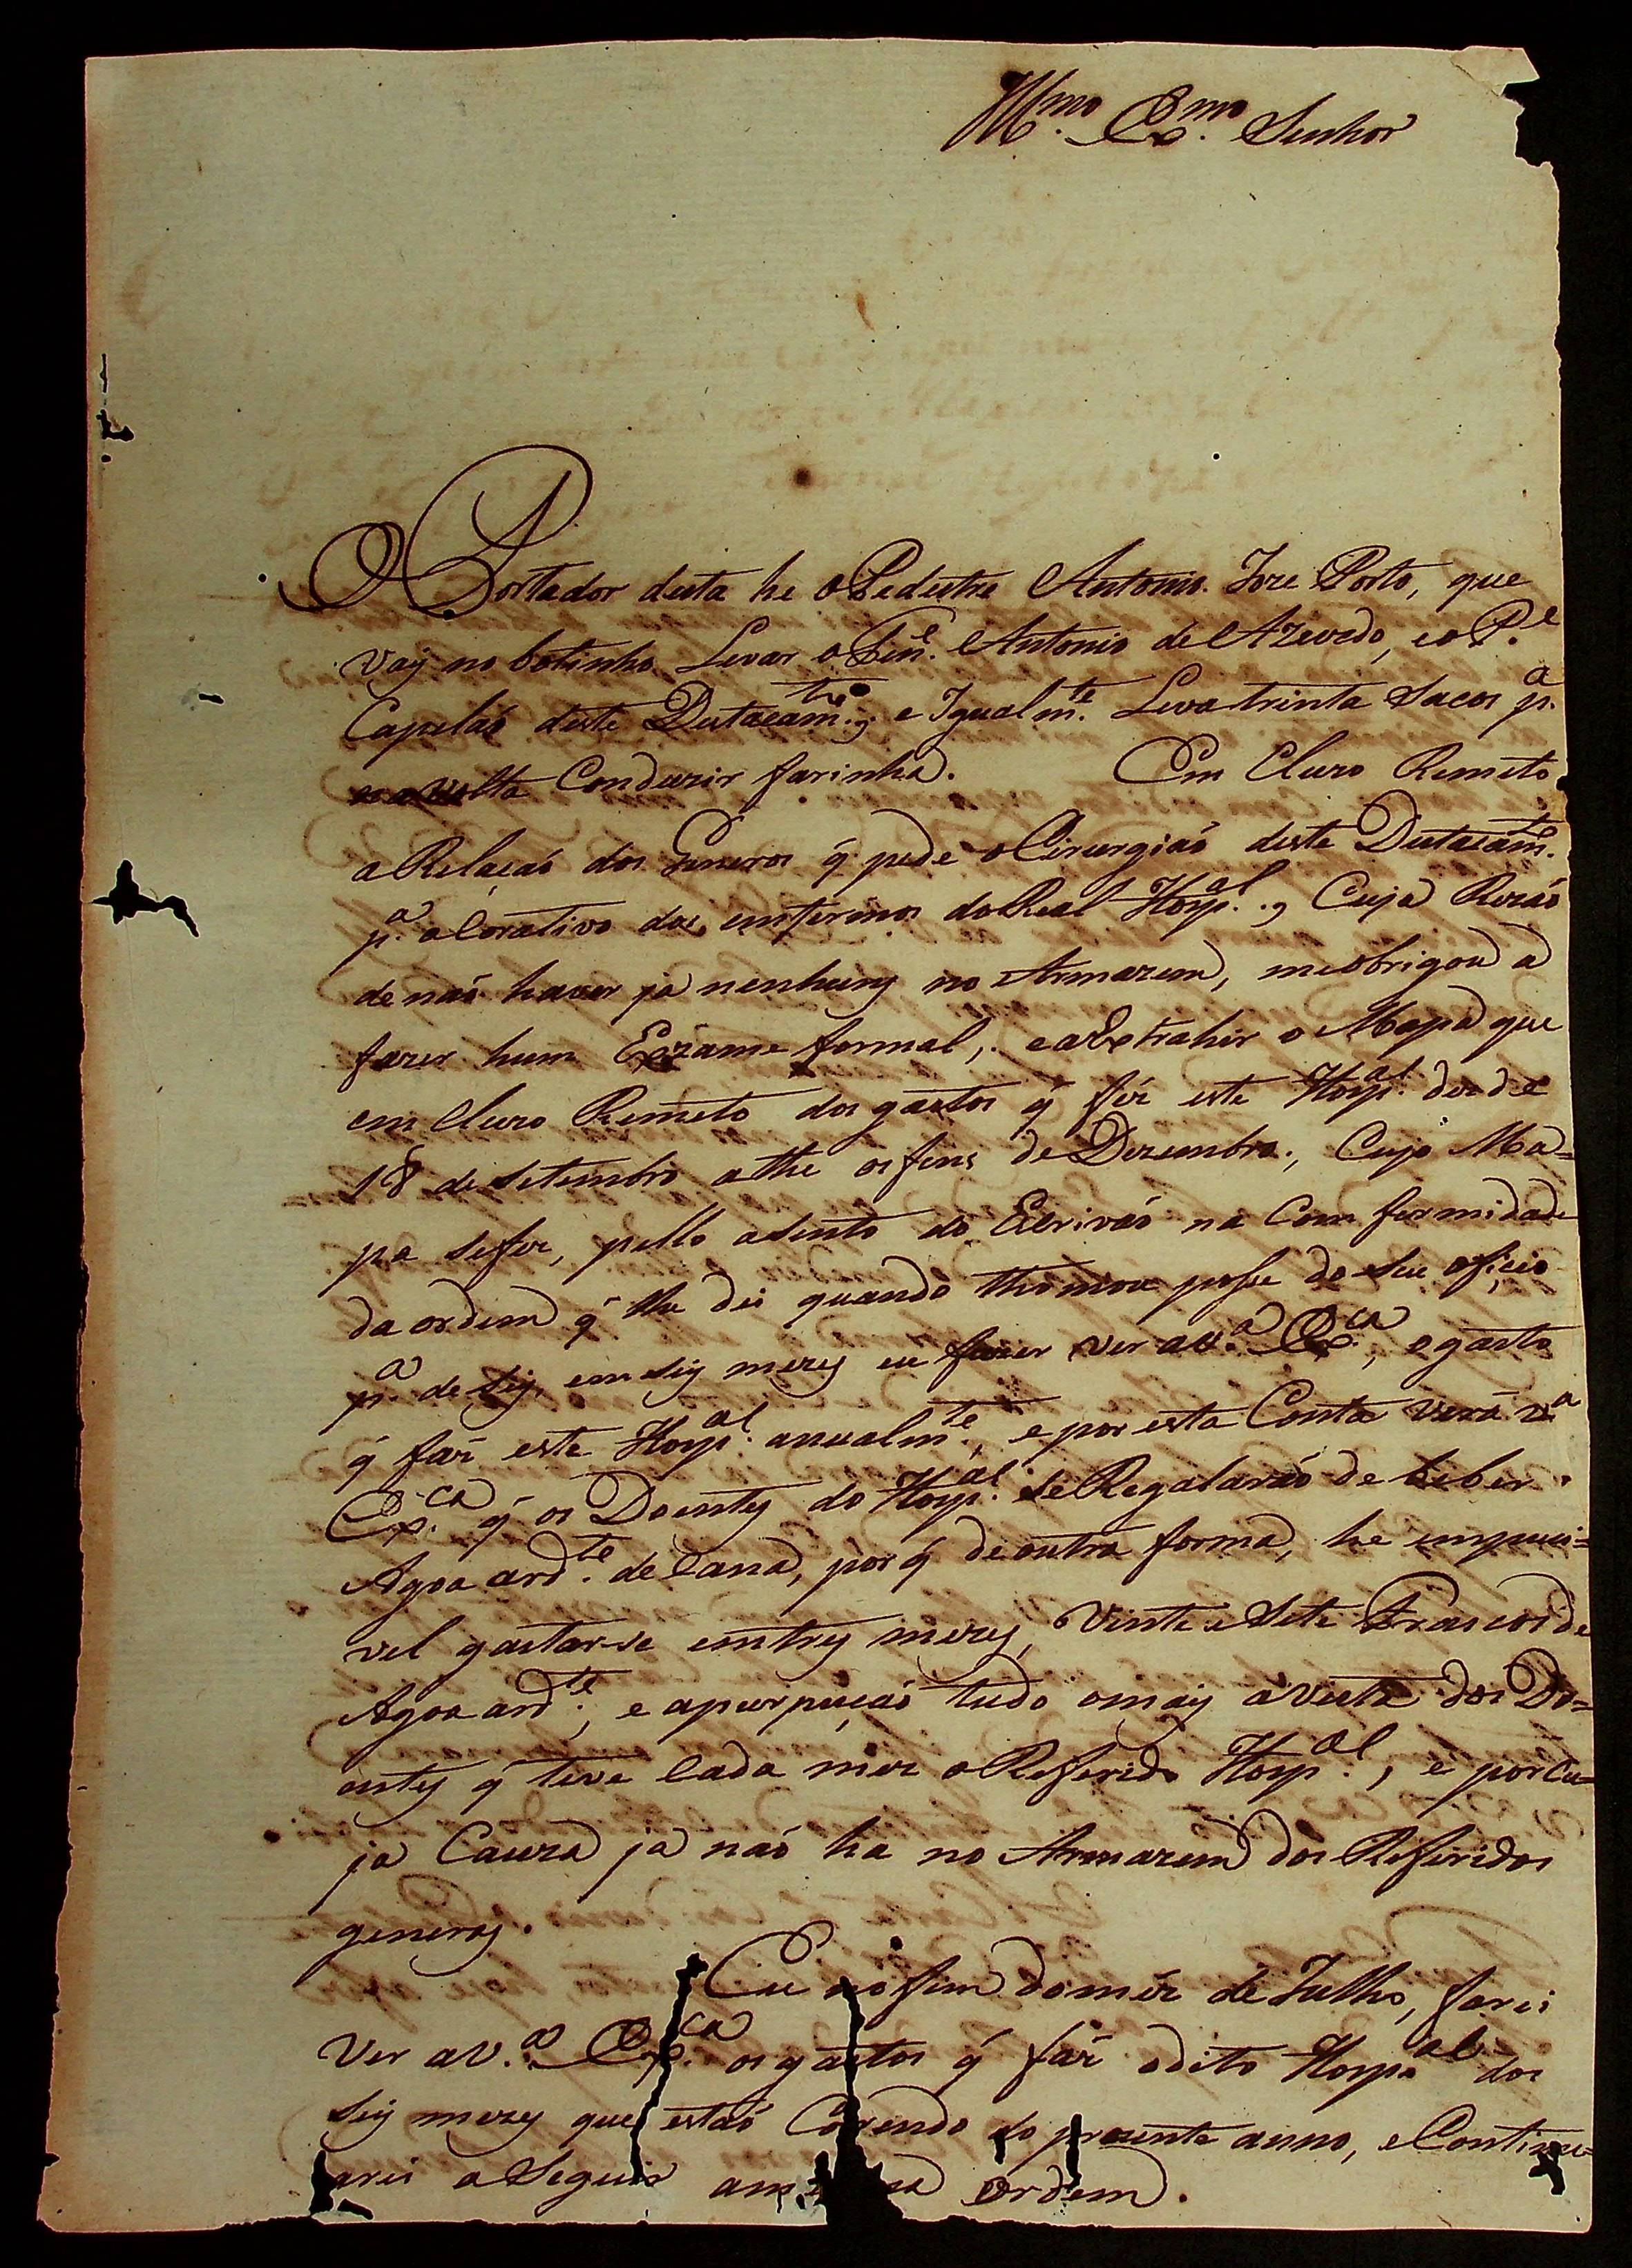 Ill.mo Ex.mo Senhor
O Portador desta he o Pedestre Antonio Joze Porto, que
vay no botinho Levar o Ten.e Antonio de Azevedo, e o P.e
Capelaõ deste Destacam.to; e Igualm.te Leva trinta Sacos p.a
volta Conduzir farinha. Em Cluzo Remeto
a Relaçaõ dos Generos q̃ pede o Cirurgiaõ deste Destacam.to
p.a o Corativo dos emfermos do Real Hosp.al, Cuja Rezaõ
de naõ haver ja nenhuns no Armazem, me obrigou a
fazer hum Exzame formal, e a Extrahir o Mapa que
em Cluzo Remeto dos gastos q̃ fés este Hosp.al desde
18 de Setembro athe os fins de Dezembro, Cujo Ma=
pa se fez, pello asento do Escrivaõ na Comformidade
da ordem q̃ lhe dei quando thomou posse do seu oficio
p.a de Seis, em seis mezes eu fazer ver a V.a Ex.ca, o gasto
q̃ faz este Hosp.al anualm.te, e por esta Conta verá V.a
Ex.ca q̃ os Doentes do Hosp.al se Regalaraõ de beber
Agoa ard.te de Cana, por q̃ de outra forma, he impuci=
vel gastar-se em tres mezes, Vinte e Sete Frascos de
Agoa ard.te, e a purpuçaõ tudo o mais a vista dos Do=
entes q̃ teve Cada mez o Referido Hosp.al, e por Cu=
ja Cauza ja naõ ha no Armazem dos Referidos
generos.
Eu no fim do méz de Julho, farei
Ver a V.a Ex.ca os gastos q̃ faz o dito Hosp.al dos
Seis mezes que estaõ Corendo do prezente anno, e Continu=
arei a Seguir a mesma ordem.